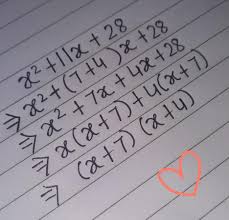 x² + 11x + 28
⇒ x² + (7+4)x + 28
⇒ x² + 7x + 4x + 28
⇒ x(x+7) + 4(x+7)
⇒ (x+7) (x+4)